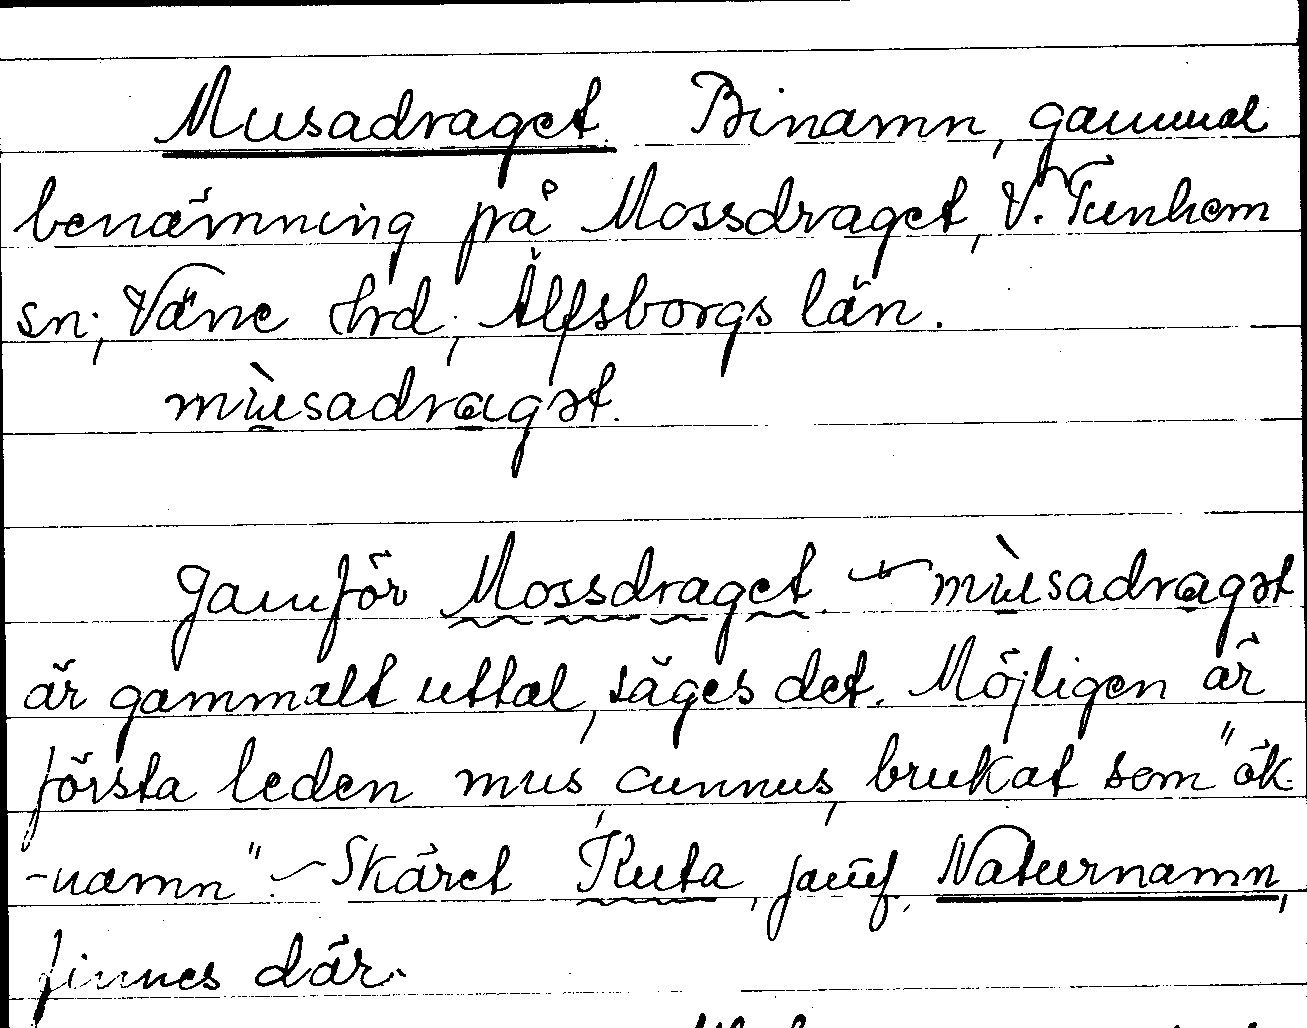 Musadraget. Binamn, gammal
benämning på Mossdraget, V. Tunhem
sn; Väne hrd; Älfsborgs län.
mùsadragət.
Jämför Mossdraget. – mùsadragət
är gammalt uttal, säges det. Möjligen är
första leden mus, cunnus, brukat som "ök-
-namn". – Skäret Kuta, jämf. Naturnamn,
finnes där.